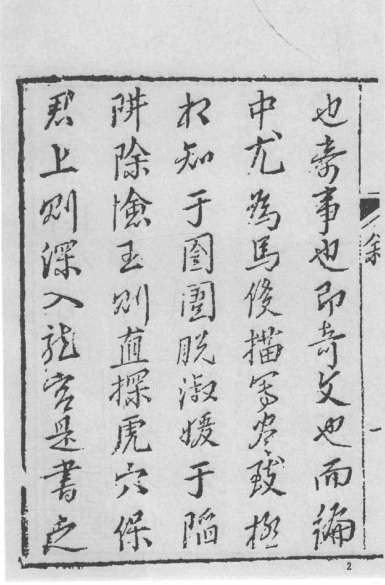 也奇事也即奇文也而編
中尤為馬俊描寫尽致拯
相知于囹圄脫淑媛于陷
阱除憸壬則直探虎穴保
君上則深入龍宮是書之
一
2